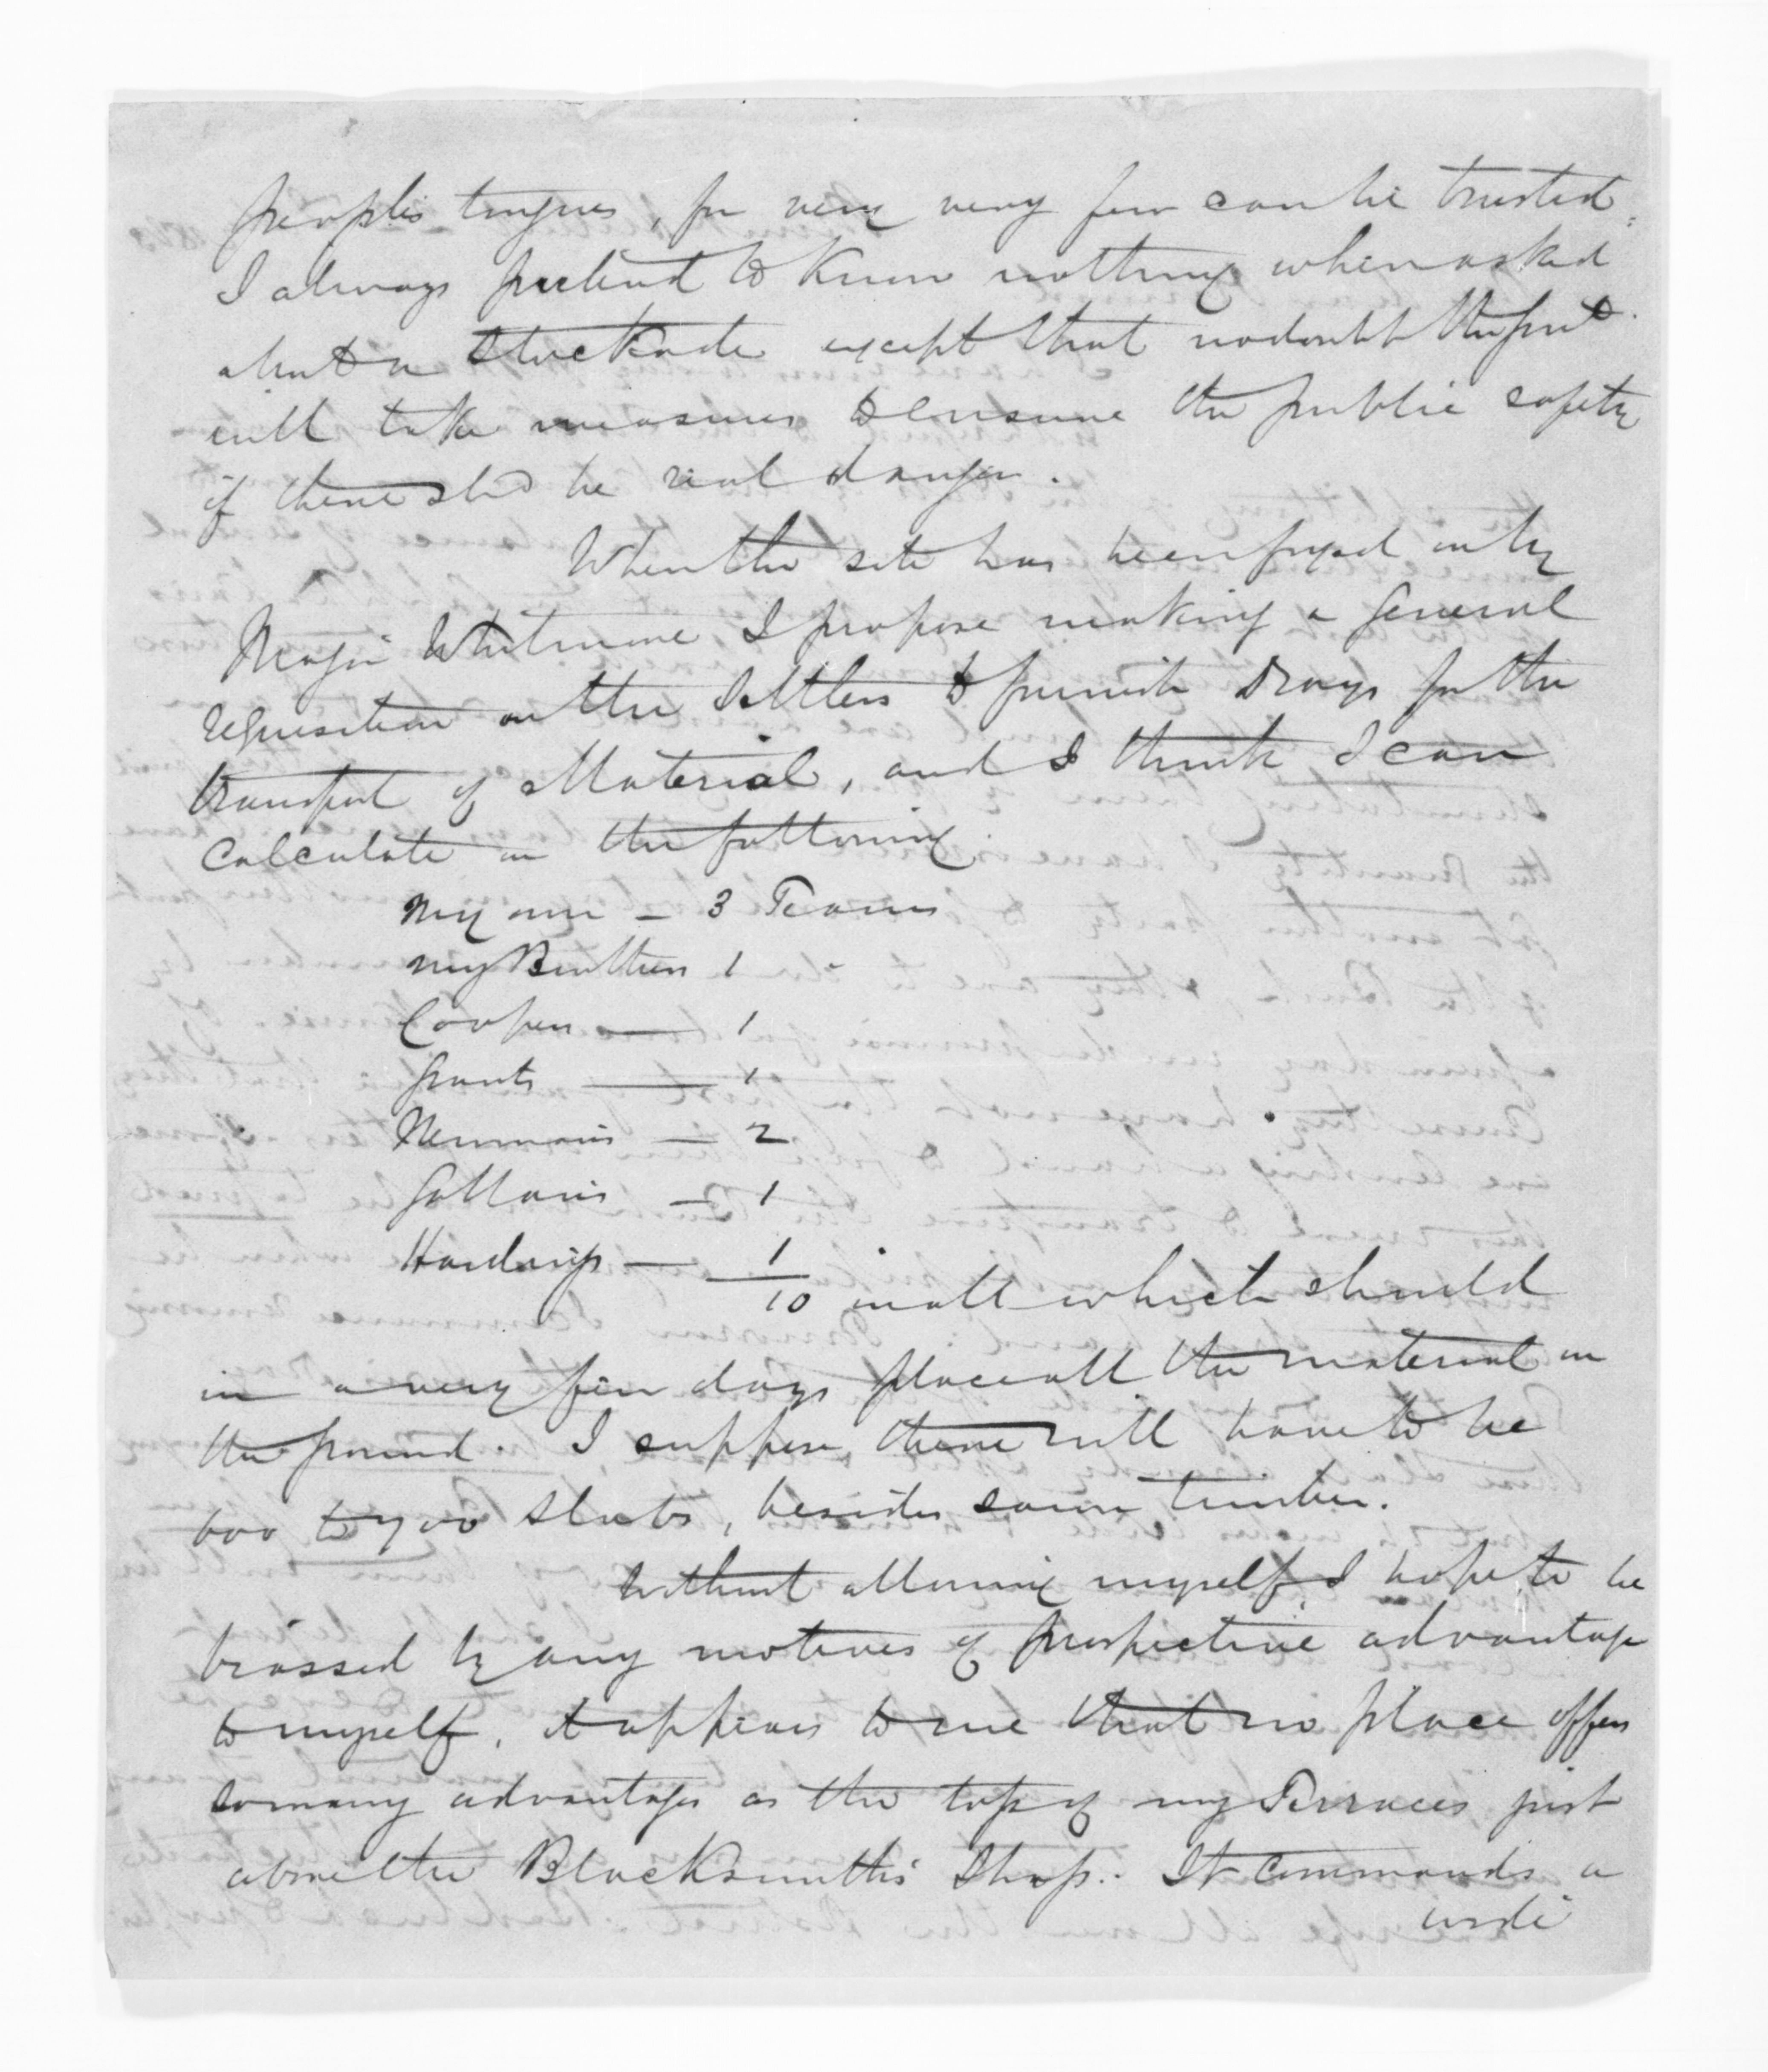 people's tongues, for very very few can be trusted.
I always pretend to know nothing when asked
about a Stockade except that no doubt the Govt
will take measures to ensure the public safety
if there shd be real danger.
When the site has been fixed on by
Major Whitmore I propose making a general
requisition on the Settlers to furnish Drays for the
transport of Material, and I think I can
calculate on the following.
My own — 3 Teams
my Brothers 1
Coopers — 1
Grants — 1
Newmans — 2
Gollans — 1
Hardings — 1
10 in all which should
in a very few days place all the material on
the ground. I suppose, there will have to be
600 to 700 Slabs, besides some timber.
Without allowing myself I hope to be
biassed by any motives of prospective advantage
to myself, it appears to me that no place offers
so many advantages as the top of my Terraces, just
above the Blacksmith's Shop. It commands a
wide